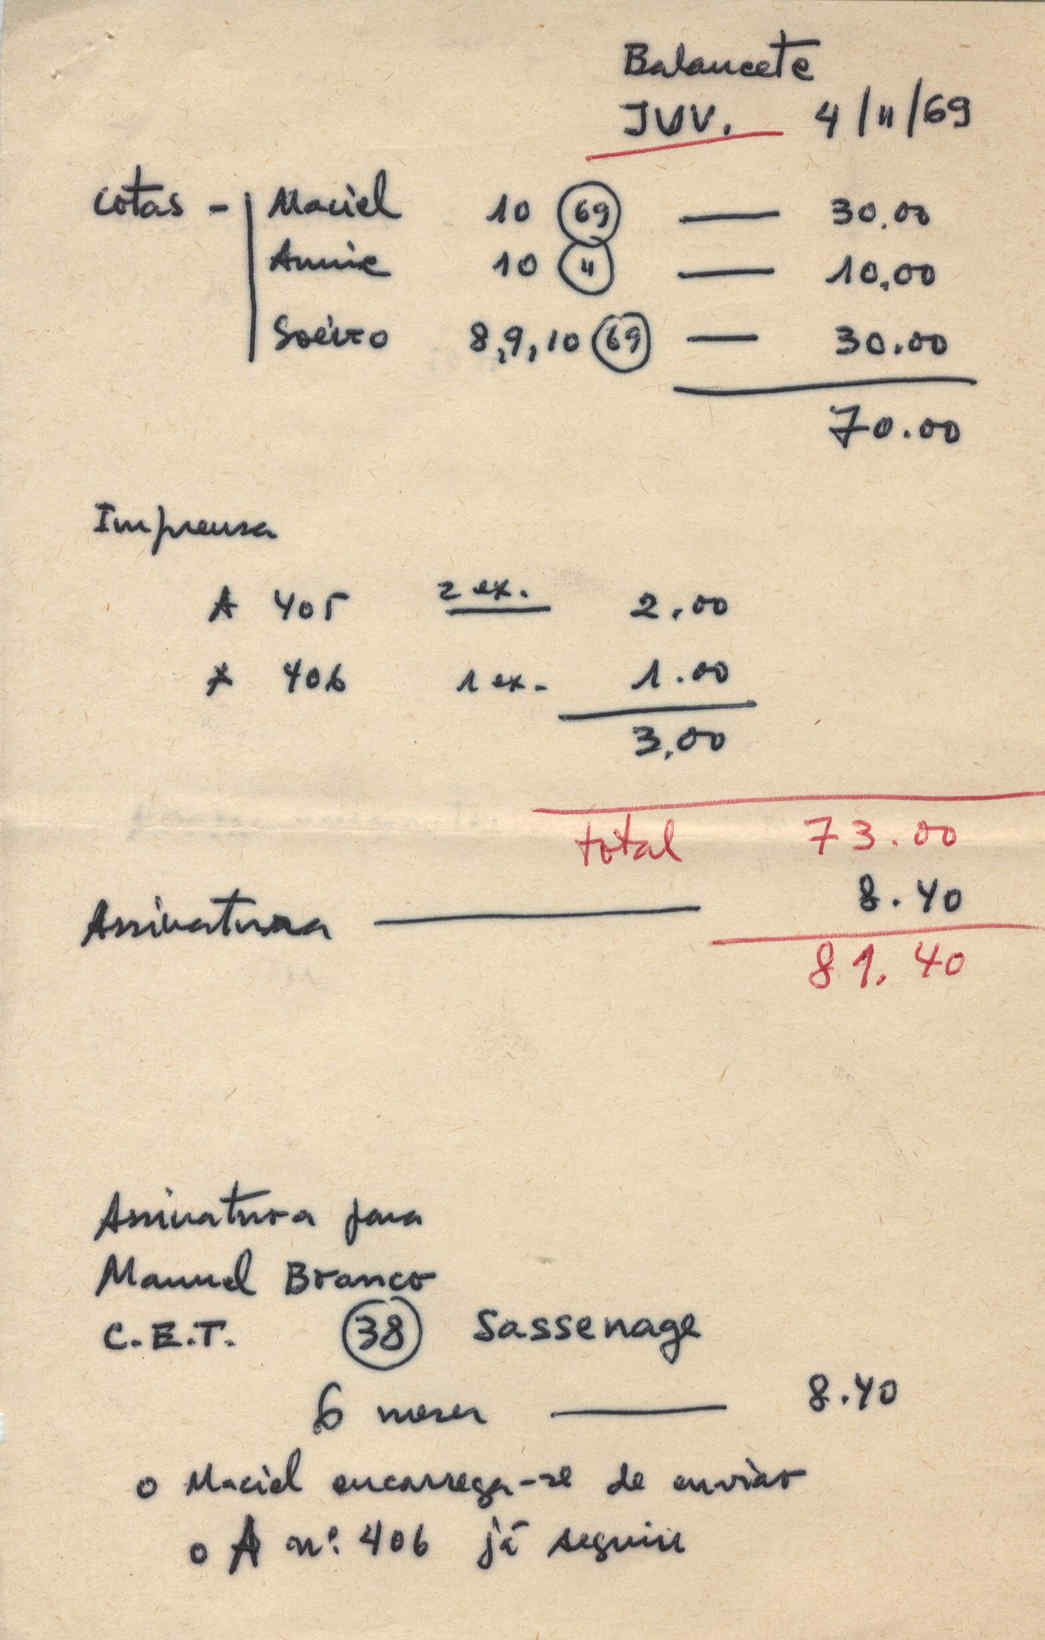 Balancete
JUV. 4/11/69
Cotas - Maciel 10 69 — 30.00
Annie 10 4 — 10,00
Soeiro 8,9,10 69 — 30.00
70.00
Imprensa
A 405 2 ex. 2.00
A 406 1 ex. 1.00
3,00
total 73.00
Assinatura — 8.40
81,40
Assinatura para
Manuel Branco
C.E.T. 38 Sassenage
6 meses — 8.40
o Maciel encarrega-se de enviar
o A nº. 406 já seguiu